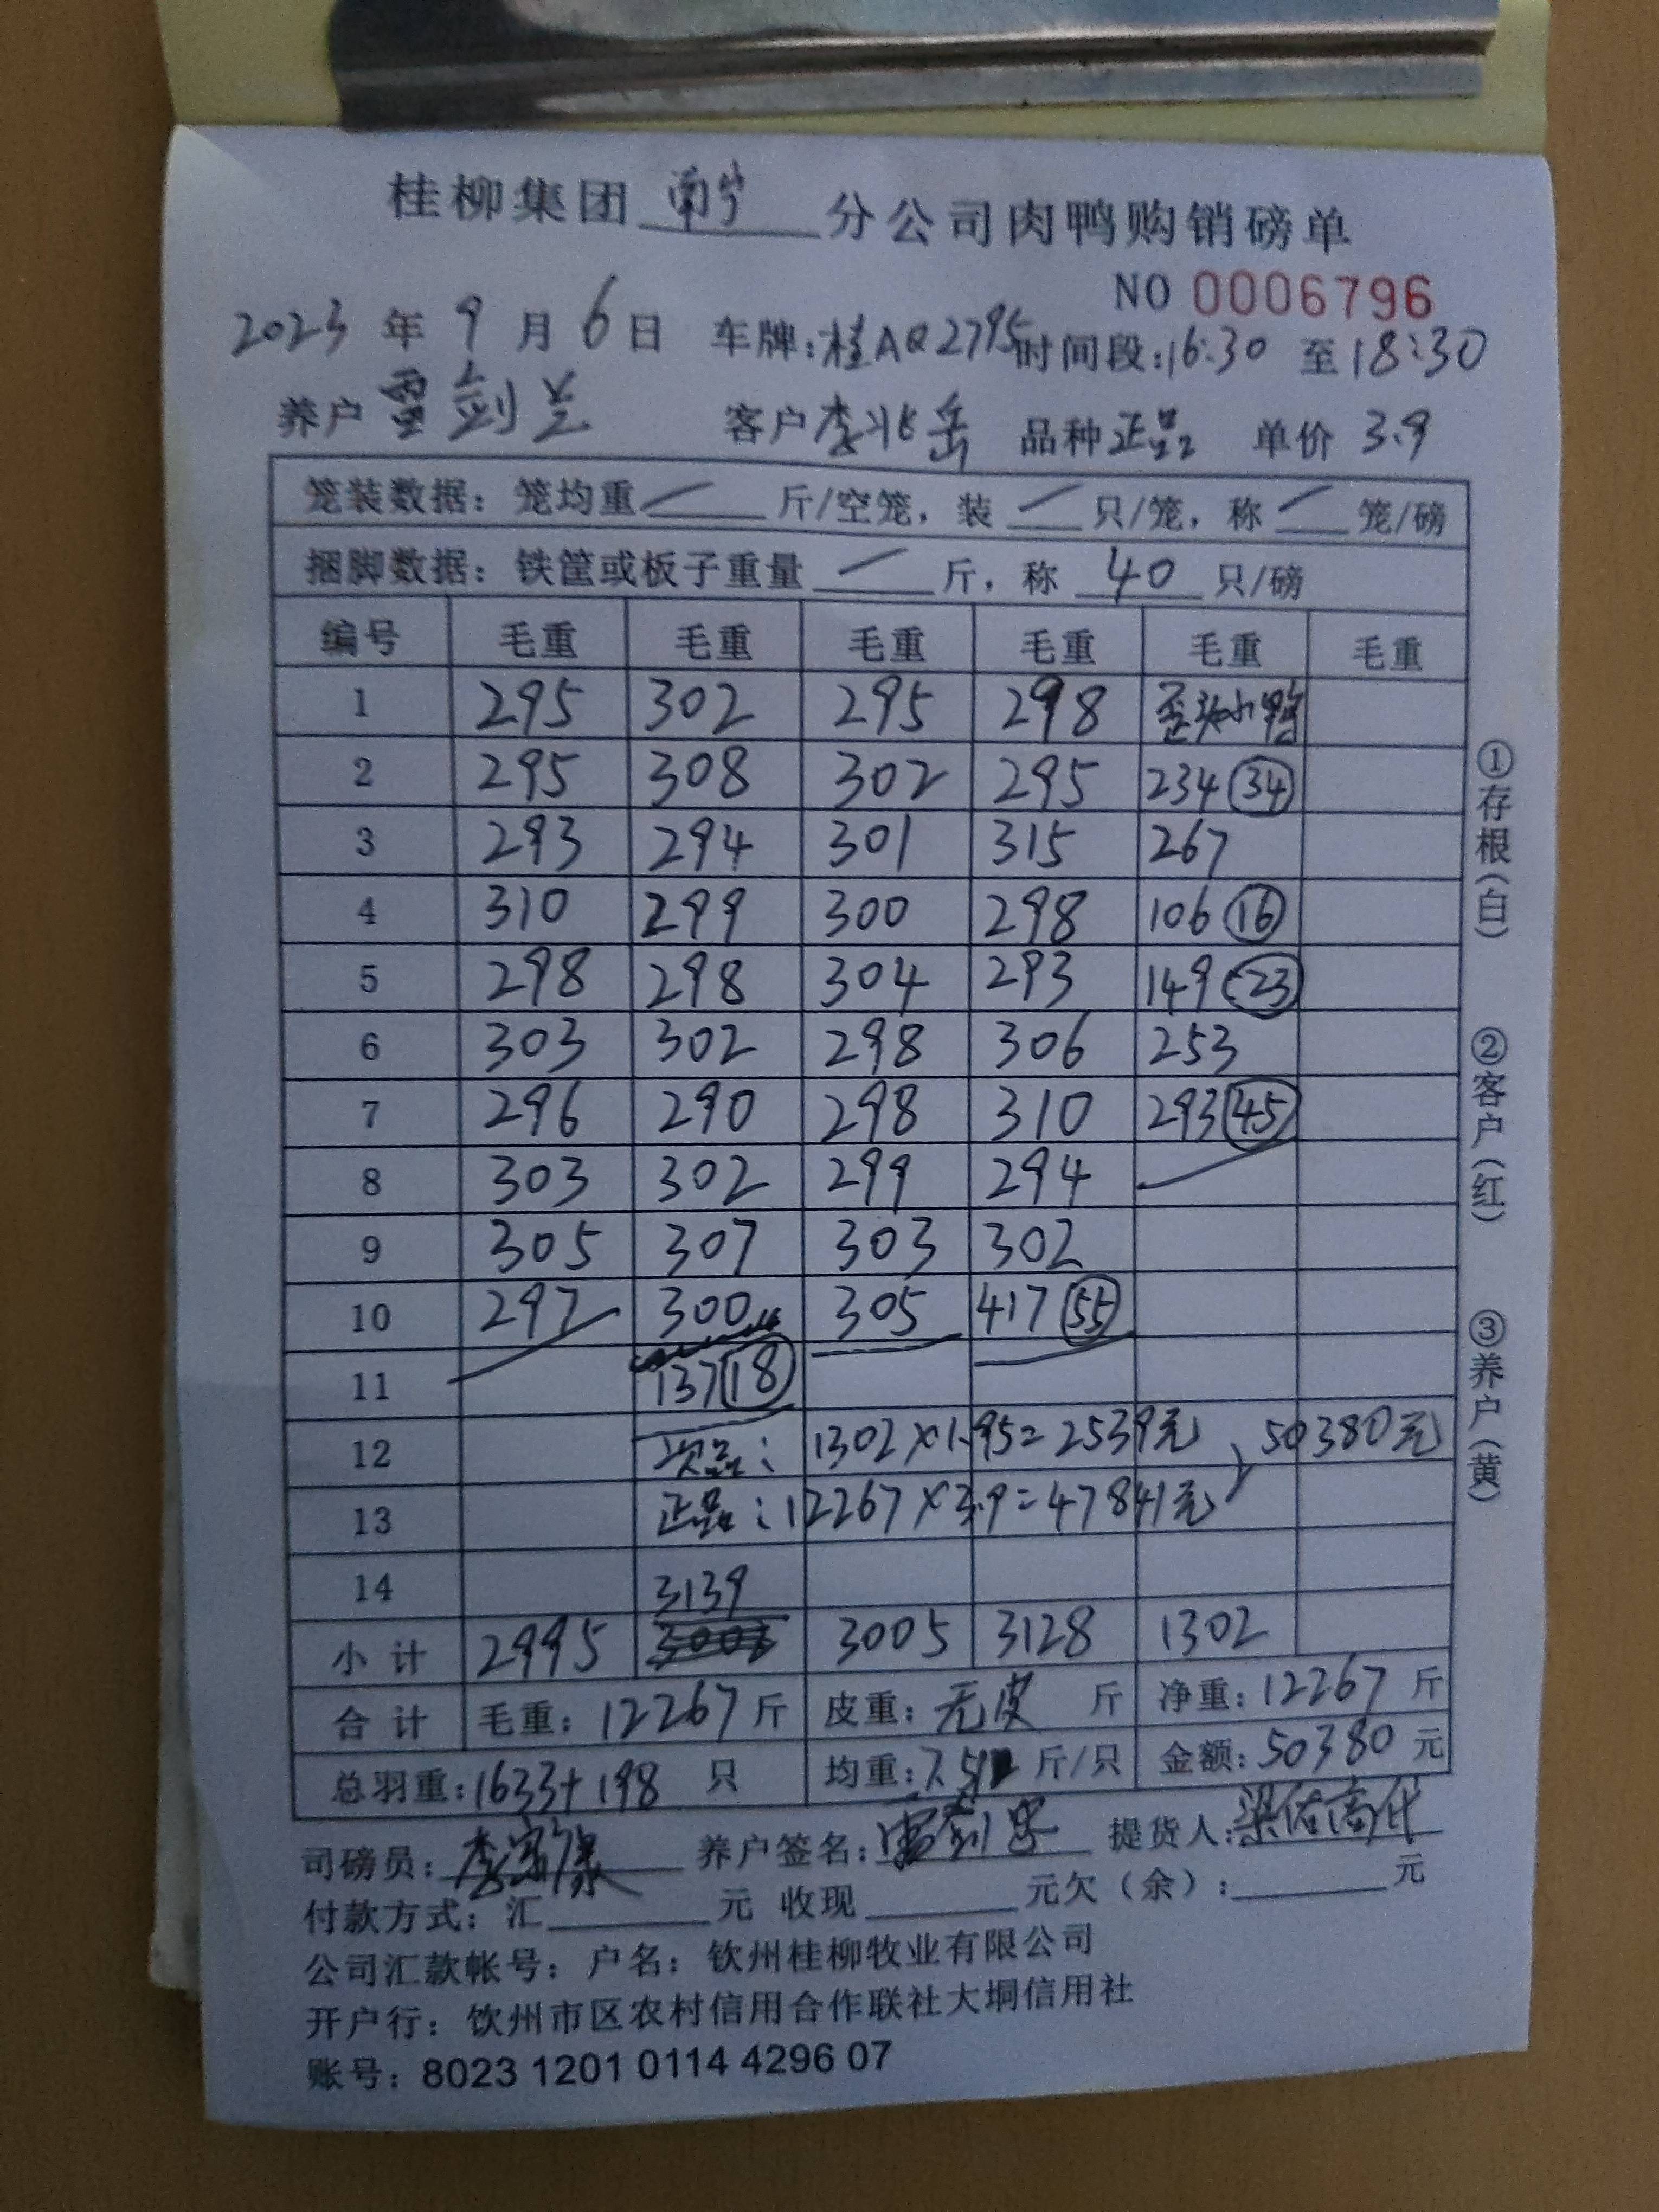 桂柳集团 南宁 分公司肉鸭购销磅单
NO 0006796
2023 年 9 月 6 日 车牌:桂AQ2795 时间段:16:30 至 18:30
养户 雷剑兰 客户 李兆岳 品种 正品 单价 3.9
笼装数据: 笼均重 / 斤/空笼, 装 / 只/笼, 称 / 笼/磅
捆脚数据: 铁筐或板子重量 / 斤, 称 40 只/磅
编号 毛重 毛重 毛重 毛重 毛重 毛重
1 295 302 295 298 歪头小鸭
2 295 308 302 295 234 (34)
3 293 294 301 315 267
4 310 299 300 298 106 (16)
5 298 298 304 293 149 (23)
6 303 302 298 306 253
7 296 290 298 310 293 (45)
8 303 302 299 294
9 305 307 303 302
10 297 300 305 417 (55)
11 137 (18)
12 次品: 1302×1.95=2539元 , 50380元
13 正品: 12267×3.9=47841元
14 3139
小计 2995 3005 3128 1302
合计 毛重: 12267 斤 皮重: 无皮 斤 净重: 12267 斤
总羽重: 1633+198 只 均重: 7.51 斤/只 金额: 50380 元
司磅员: 养户签名: 雷剑 提货人:
付款方式: 汇 元 收现 元欠(余): 元
公司汇款帐号: 户名: 钦州桂柳牧业有限公司
开户行: 钦州市区农村信用合作联社大垌信用社
账号: 8023 1201 0114 4296 07
①存根(白) ②客户(红) ③养户(黄)